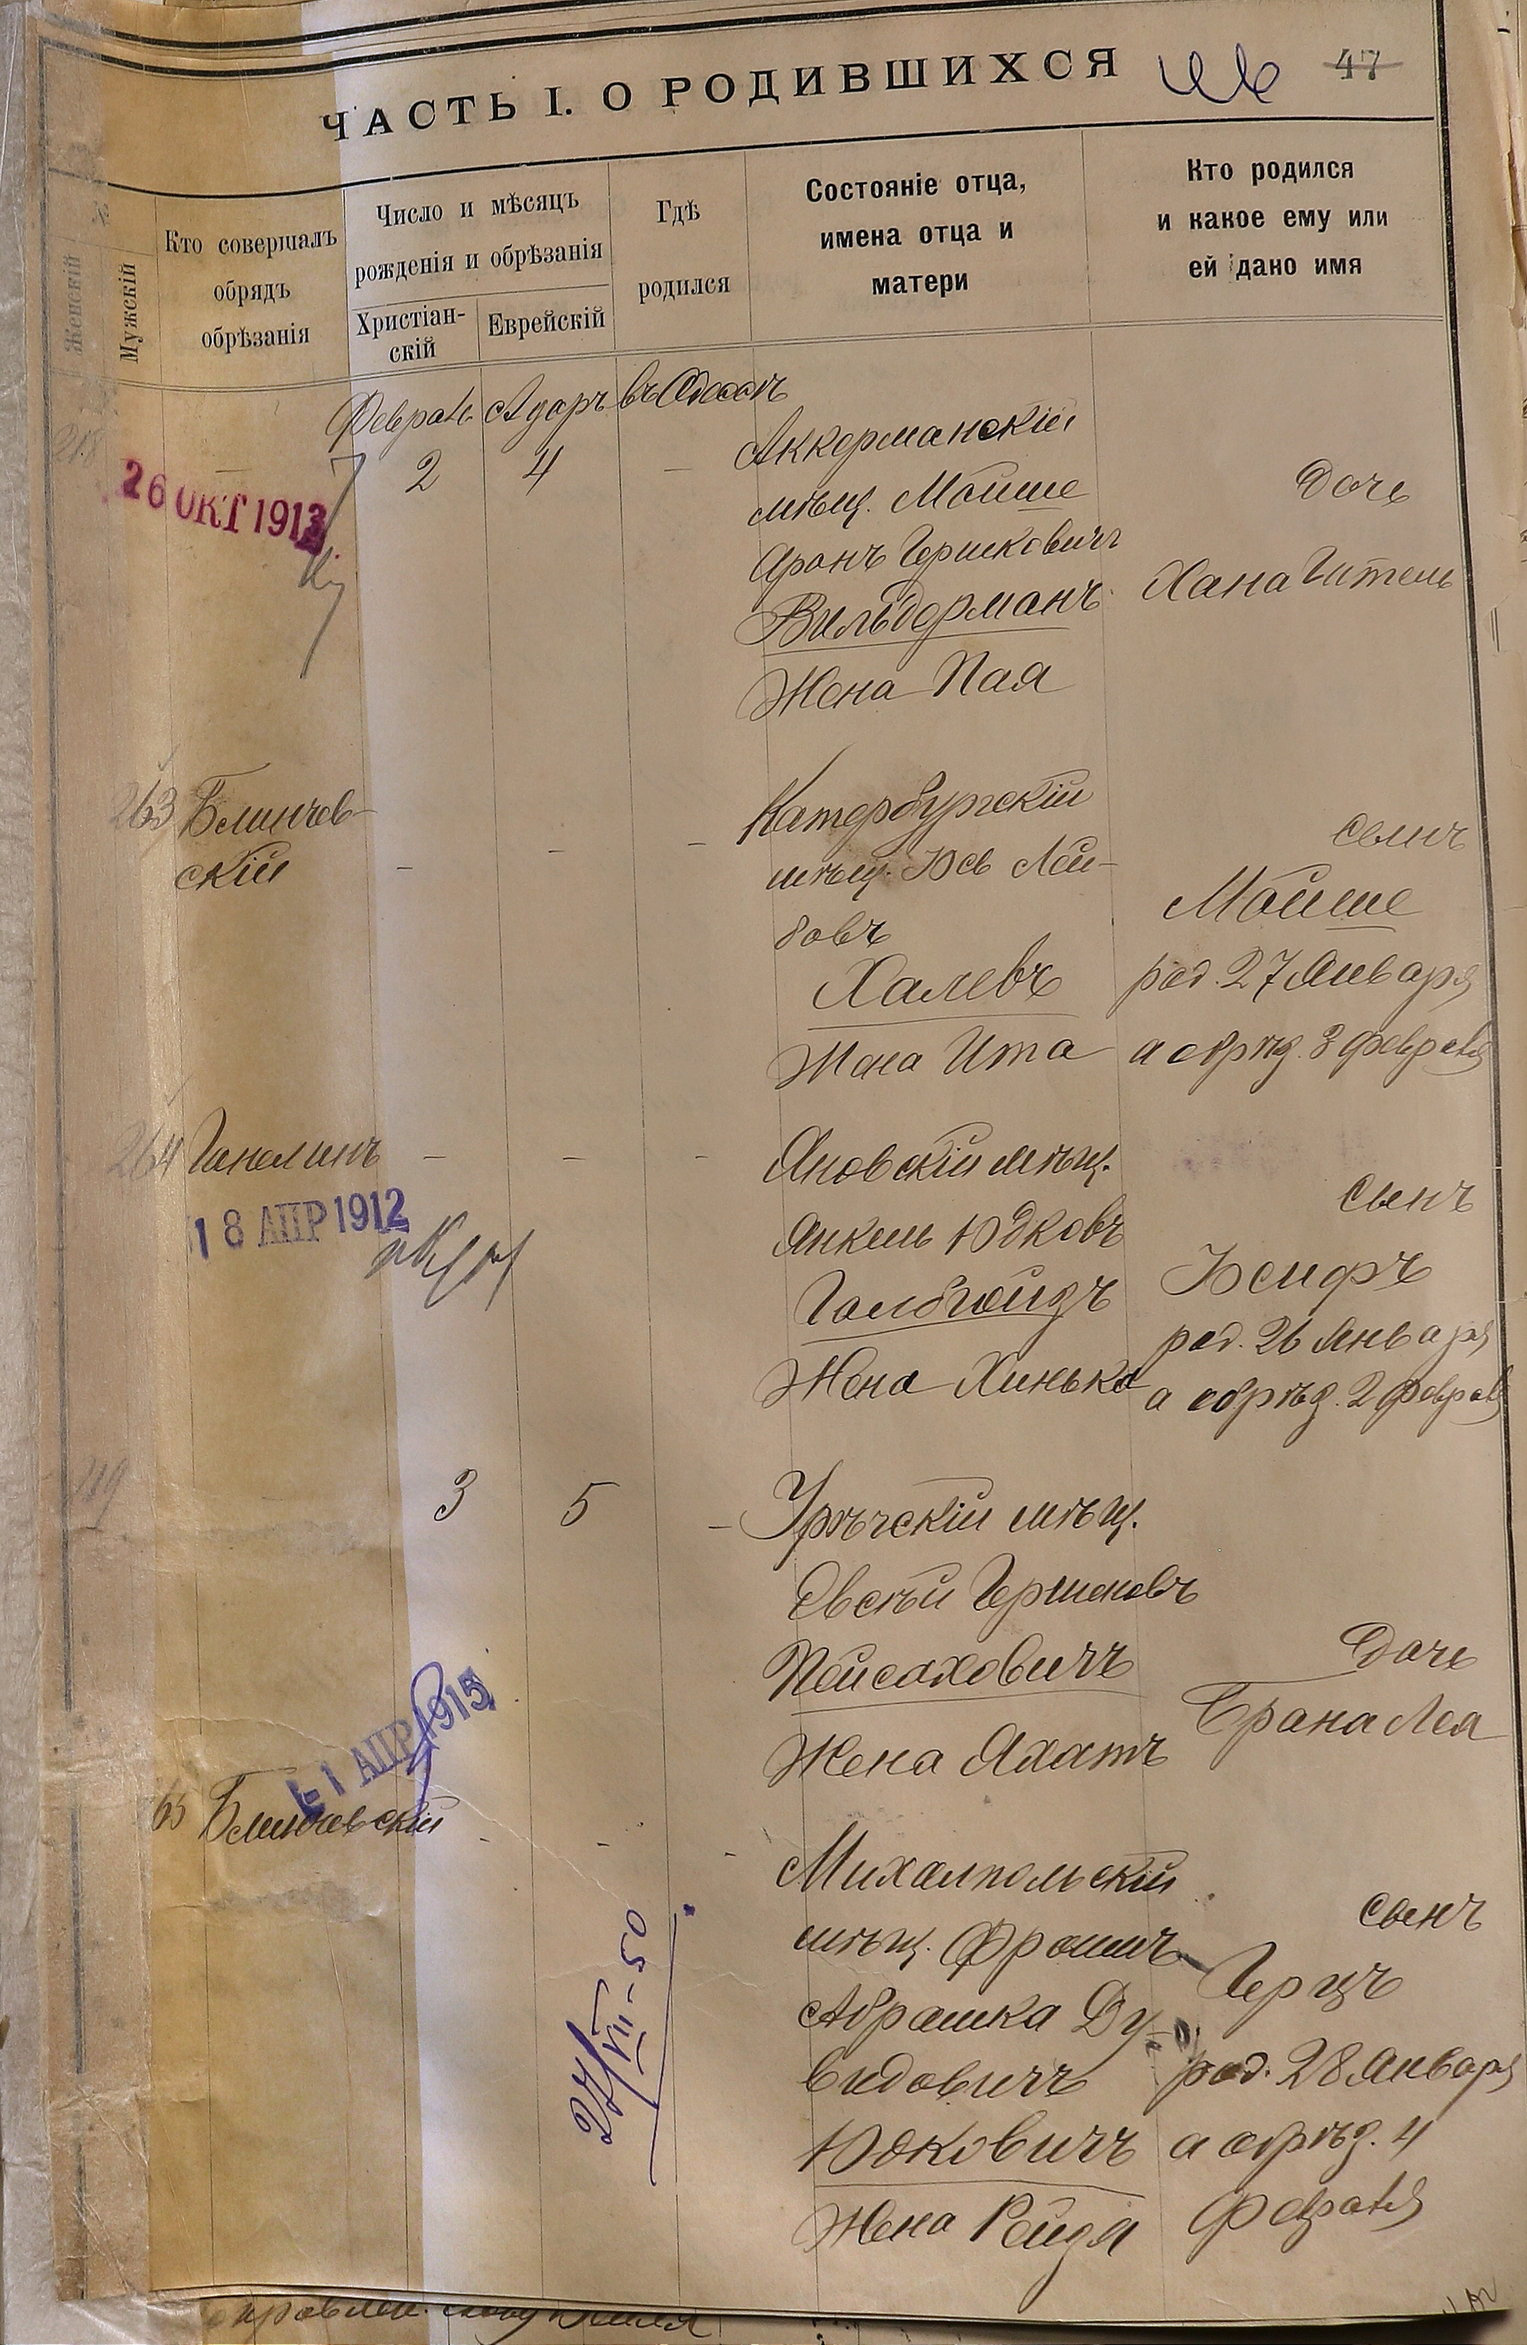 ЧАСТЬ I. О РОДИВШИХСЯ
47
№
Женскій
Мужскій
Кто совершалъ
обрядъ
обрѣзанія
Число и мѣсяцъ
рожденія и обрѣзанія
Христіан-
скій
Еврейскій
Гдѣ
родился
Состояніе отца,
имена отца и
матери
Кто родился
и какое ему или
ей дано имя
Февраль Адаръ въ Одессѣ
218
2 4
26 ОКТ 1913
Аккерманскій
мѣщ. Мойше
Аронъ Гершковичъ
Вильдерманъ
Жена Пая
Дочь
Хана Гитель
263 Блинчев-
скій
Катербургскій
мѣщ. Іось Лей-
бовъ
Халевъ
Жена Ита
сынъ
Мойше
род. 27 Января
а обрѣз. 3 февраля
264 Ганелинъ
18 АПР 1912
Яновскій мѣщ.
Янкель Юдковъ
Гольбгойзъ
Жена Хинька
сынъ
Іосифъ
род. 26 Января
а обрѣз. 2 февраля
219
3 5
Урѣчскій мѣщ.
Овсѣй Гершоновъ
Пейсаховичъ
Жена Яхатъ
Дочь
Брана Лея
1 АПР 1915
65 Блинчевскій
27/VII-50
Михалпольскій
мѣщ. Фроимъ
Абрашка Ду-
видовичъ
Юдковичъ
Жена Рейзя
сынъ
Герцъ
род. 28 Января
а обрѣз. 4
февраля